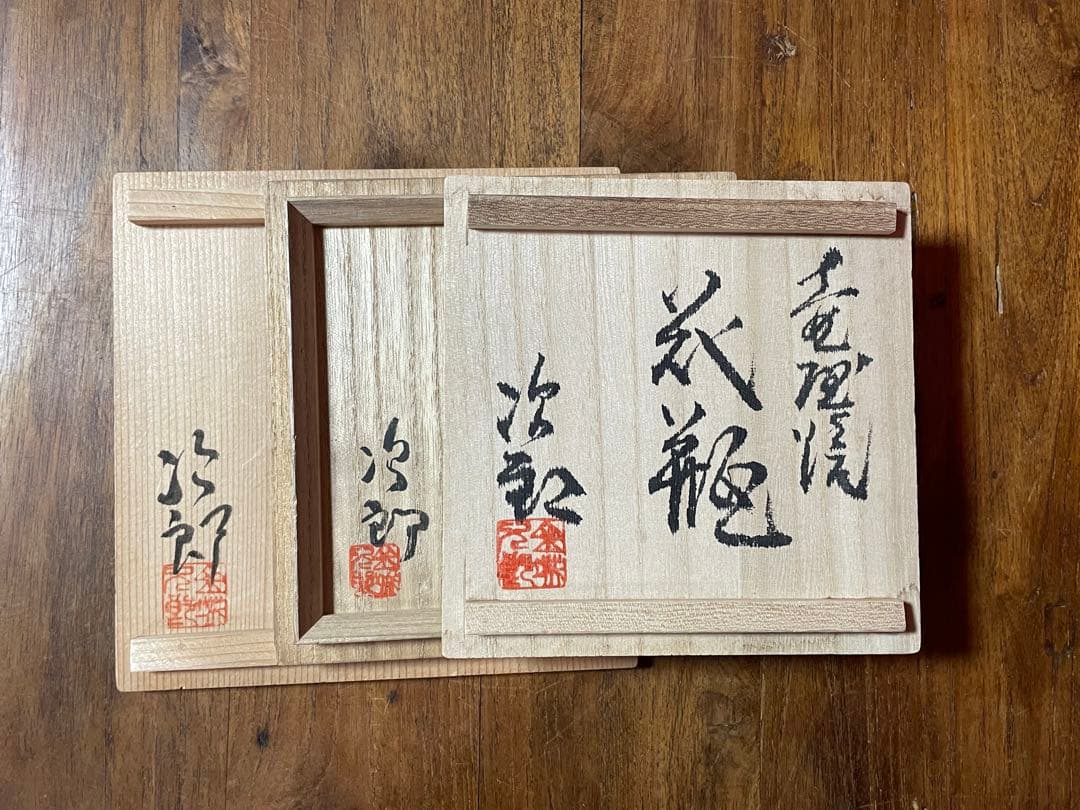 壺屋焼
花瓶
次郎
次郎
次郎